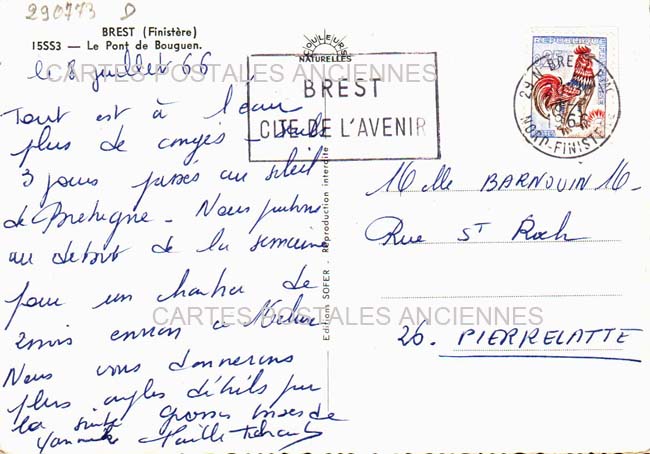 290773 D
BREST (Finistère)
15SS3 — Le Pont de Bouguen.
COULEURS
NATURELLES
le 8 juillet 66
Tout est à l'eau
plus de congés - seuls
3 jours passés au soleil
de Bretagne - Nous partons
au début de la semaine
pour un chantier de
2 mois environ à
Nous vous donnerons
plus amples détails par
la suite grosses bises de
BREST
CITE DE L'AVENIR
29 N BREST PPAL
1966
NORD-FINISTERE
REPUBLIQUE
Editions SOFER - Reproduction interdite
Melle BARNOUIN M.
Rue St Roch
26. PIERRELATTE
CARTES POSTALES ANCIENNES
CARTES POSTALES ANCIENNES